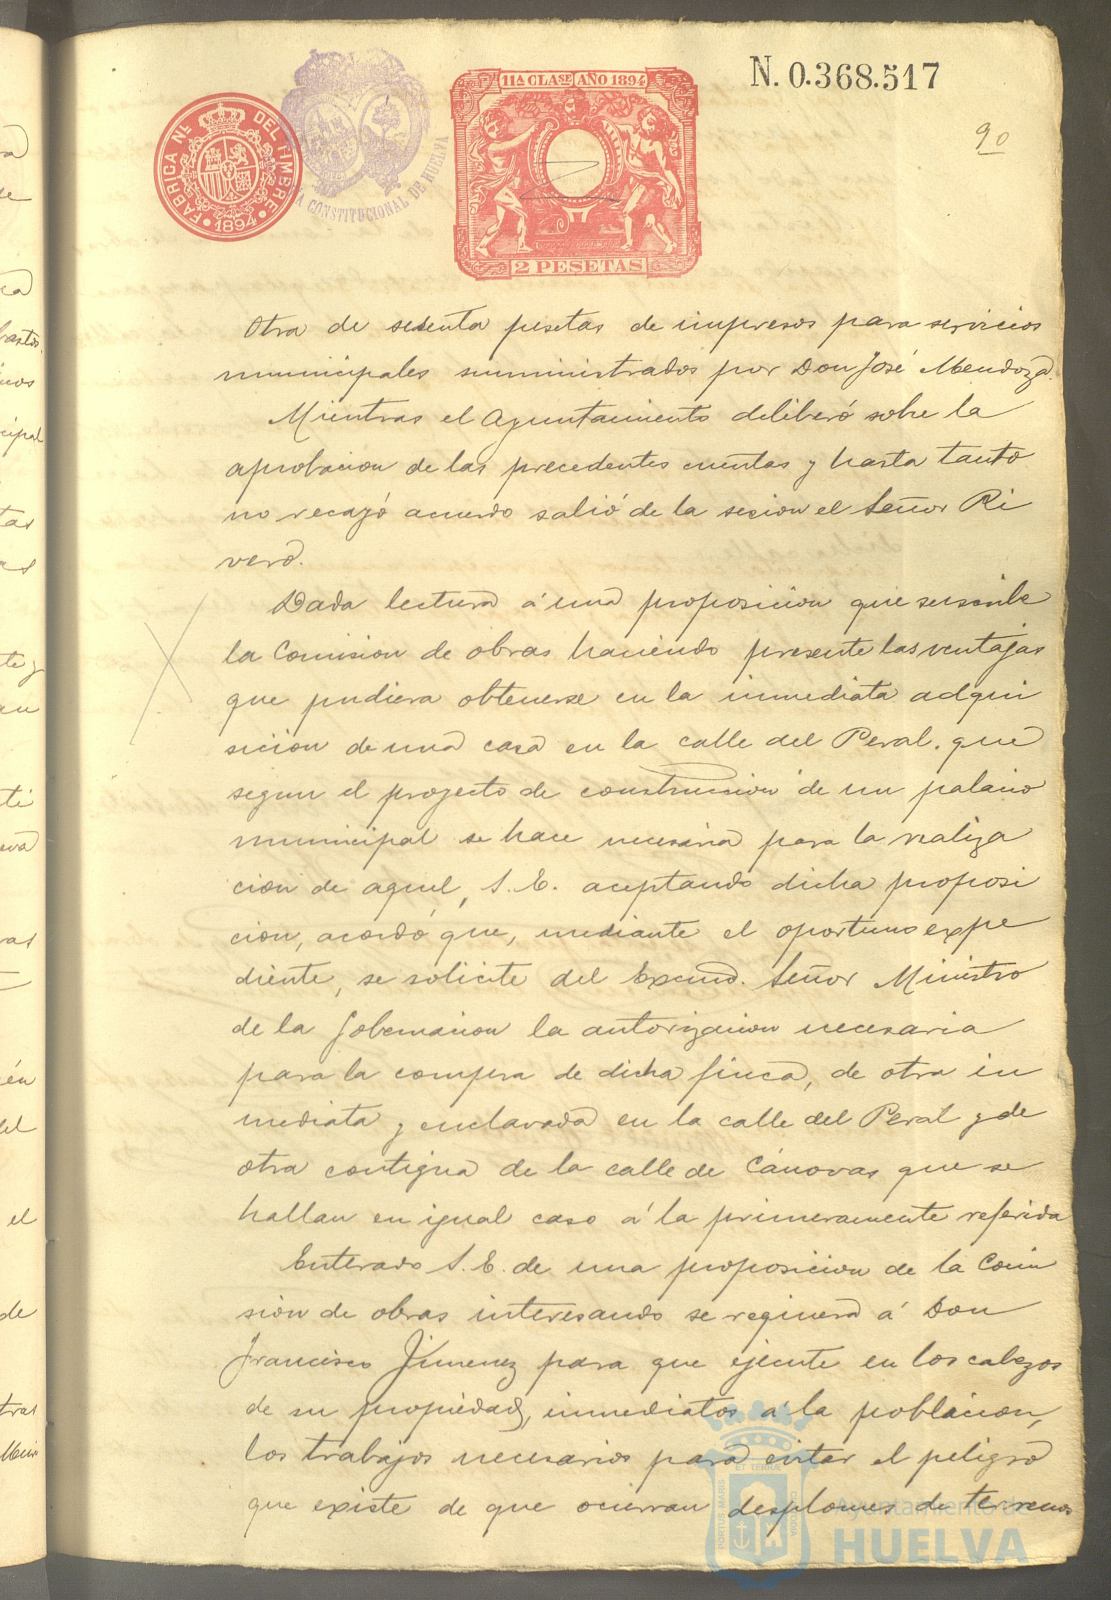 N. 0.368.517
11ª CLASE AÑO 1894
FABRICA NL. DEL TIMBRE
1894
CONSTITUCIONAL DE HUELVA
2 PESETAS
90
Otra de sesenta pesetas de impresos para servicios
municipales suministrados por Don José Mendoza.
Mientras el Ayuntamiento deliberó sobre la
aprobacion de las precedentes cuentas y hasta tanto
no recayó acuerdo salió de la sesion el Señor Ri
vero.
Dada lectura á una proposicion que suscribe
la Comision de obras haciendo presente las ventajas
que pudiera obtenerse en la inmediata adqui
sicion de una casa en la calle del Peral, que
segun el proyecto de construccion de un palacio
municipal se hace necesaria para la realiza
cion de aquel, S. E. aceptando dicha proposi
cion, acordó que, mediante el oportuno expe
diente, se solicite del Excmo. Señor Ministro
de la Gobernacion la autorizacion necesaria
para la compra de dicha finca, de otra in
mediata y enclavada en la calle del Peral y de
otra contigua de la calle de Cánovas que se
hallan en igual caso á la primeramente referida
Enterado S. E. de una proposicion de la Comi
sion de obras interesando se requiera á Don
Francisco Jimenez para que ejecute en los cabezos
de su propiedad, inmediatos á la poblacion,
los trabajos necesarios para evitar el peligro
que existe de que ocurran desplomes de terrenos
PORTUS MARIS ET TERRAE CUSTODIA
Ayuntamiento de
HUELVA